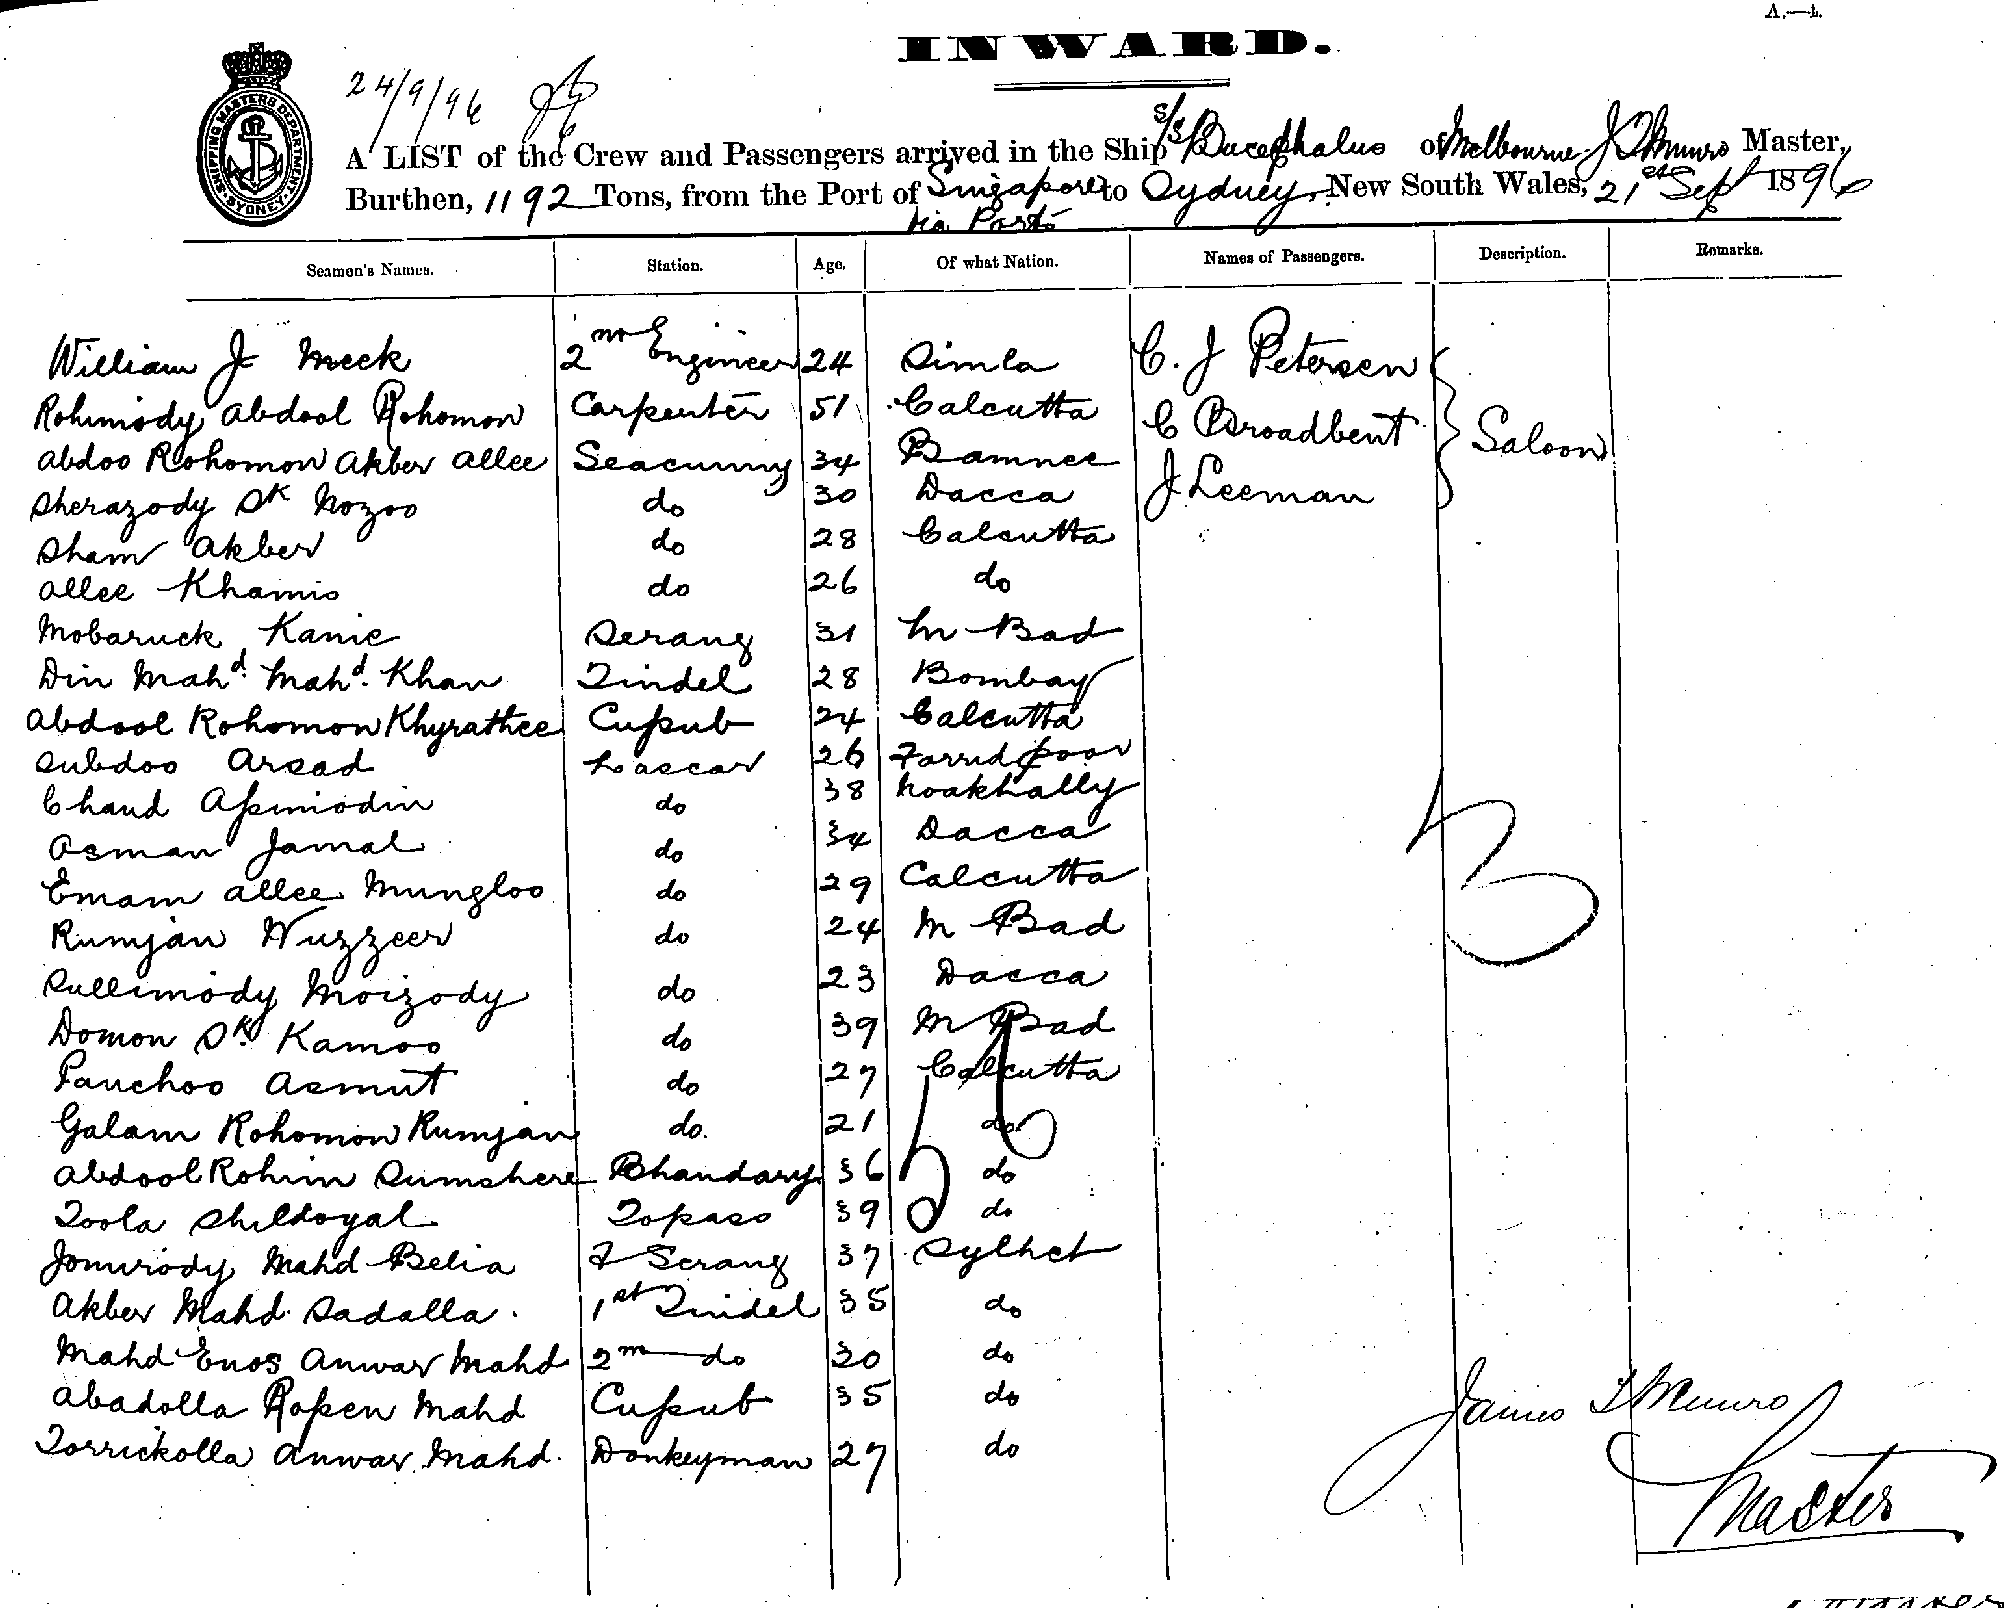 A.—1.
INWARD.
24/9/96
SHIPPING MASTERS DEPARTMENT SYDNEY
A LIST of the Crew and Passengers arrived in the Ship S/S Bucephalus of Melbourne J T Munro Master,
Burthen, 1192 Tons, from the Port of Singapore to Sydney, New South Wales, 21st Sept 1896
via Ports
Seamen's Names. Station. Age. Of what Nation. Names of Passengers. Description. Remarks.
William J Meek 2nd Engineer 24 Simla C. J Petersen
Rohimody Abdool Rohomon Carpenter 51 Calcutta C Broadbent Saloon
Abdoo Rohomon Akber Allee Seacunny 34 Bamnee
Sherazody Sk Nozoo do 30 Dacca J Leeman
Sham Akber do 28 Calcutta
Allee Khamis do 26 do
Mobaruck Kanie Serang 31 M Bad
Din Mahd. Mahd. Khan Tindel 28 Bombay
Abdool Rohomon Khyrathee Cussub 24 Calcutta
Subdoo Arsad Lascar 26 Furrudpoor
Chand Assmiodin do 38 Noakhally
Osman Jamal do 34 Dacca
Emam Allee Mungloo do 29 Calcutta
Rumjan Wuzzeer do 24 M Bad
Sullimody Moizody do 23 Dacca
Domon Sk. Kamoo do 39 M Bad
Panchoo Asmut do 27 Calcutta
Golam Rohomon Rumjan do. 21 do
Abdool Rohim Sumshere Bhandary 36 do
Toola Shildoyal Topass 39 do
Jomirody Mahd Belia F Serang 37 Sylhet
Akber Mahd. Sadalla. 1st Tindel 35 do
Mahd Enos Anwar Mahd 2nd do 30 do
Abadolla Rossen Mahd Cussub 35 do
Torrickolla Anwar Mahd. Donkeyman 27 do
3
James T Munro
Master